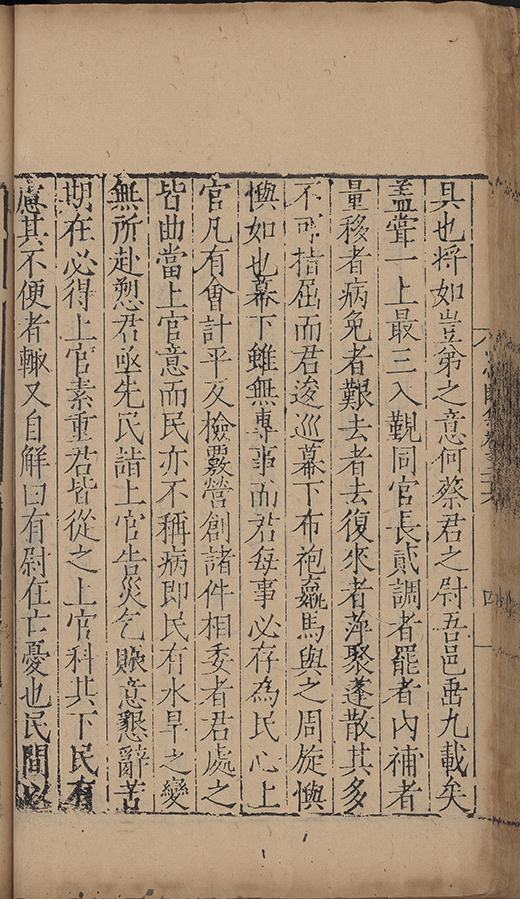 具也將如豈弟之意何蔡君之尉吾邑垂九載矣
盖嘗一上最三入覲同官長貳調者罷者内補者
量移者病免者艱去者去復來者萍聚蓬散其多
不可指屈而君逡巡幕下布袍羸馬與之周旋懙
懙如也幕下雖無專事而君每事必存為民心上
官凡有會計平反檢覈營創諸件相委者君處之
皆曲當上官意而民亦不稱病即民有水旱之變
無所赴愬君亟先民詣上官告災乞賑意懇辭苦
期在必得上官素重君皆從之上官科其下民有
慮其不便者輙又自解曰有尉在亡憂也民間